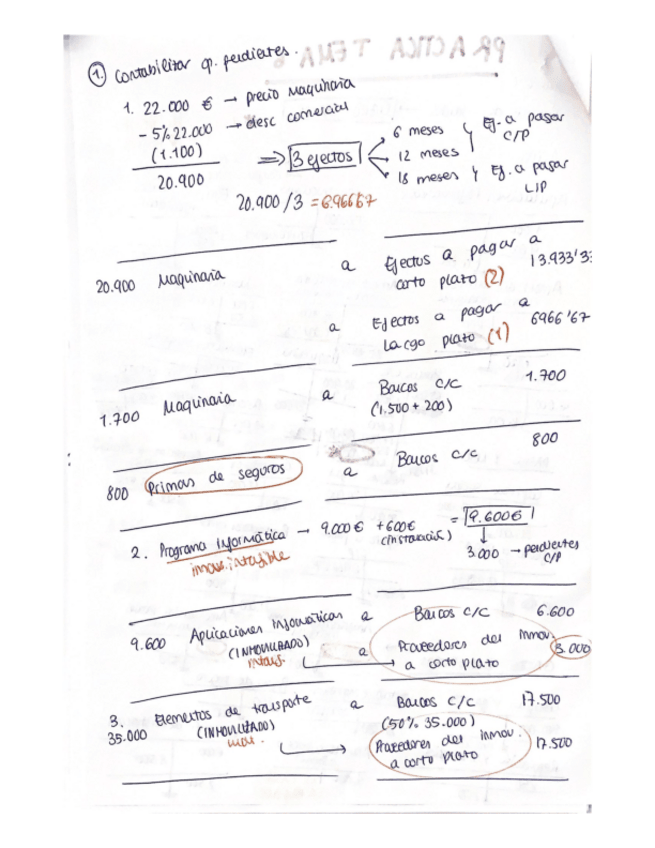 PRACTICA TEMA 6
1. Contabilizar op. pendientes.
1. 22.000 € → precio maquinaria
- 5% 22.000 → desc comercial
(1.100)
20.900
=> 3 efectos
6 meses
12 meses
Ef. a pagar C/P
18 meses
Ef. a pagar L/P
20.900 / 3 = 6.966'67
20.900 Maquinaria a Efectos a pagar a
corto plazo (2) 13.933'33
a Efectos a pagar a
largo plazo (1) 6966'67
1.700 Maquinaria a Bancos c/c 1.700
(1.500 + 200)
800 Primas de seguros a Bancos c/c 800
2. Programa informática → 9.000 € + 600 € = 9.600 €
inmov. intangible
(instalación)
3.000 → pendientes
C/P
9.600 Aplicaciones informáticas a Bancos c/c 6.600
(INMOVILIZADO)
intang.
a Proveedores del inmov. 3.000
a corto plazo
3. Elementos de transporte a Bancos c/c 17.500
35.000 (INMOVILIZADO) (50% 35.000)
mat.
Proveedores del inmov. 17.500
a corto plazo